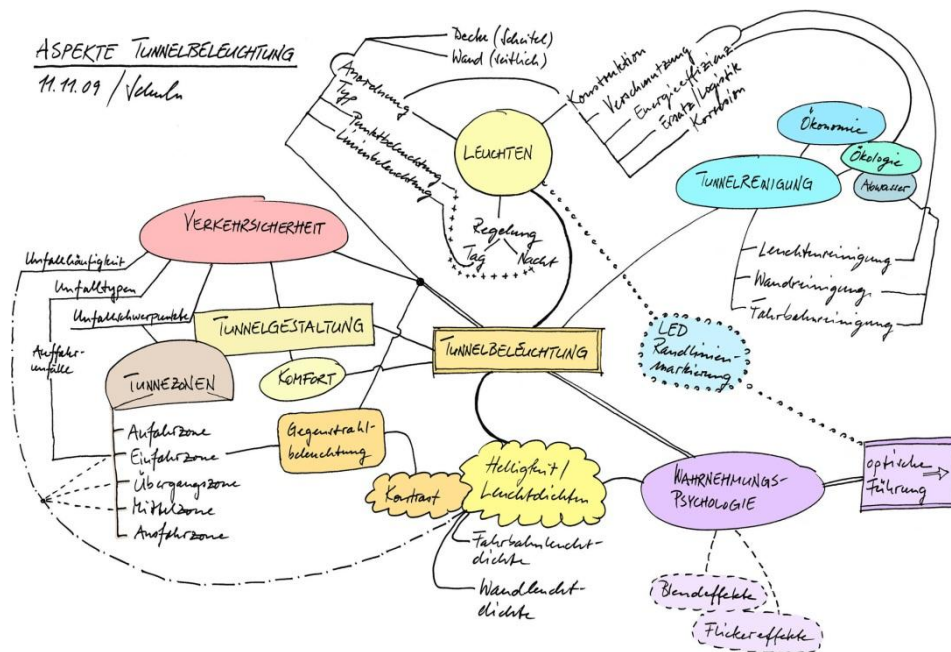 ASPEKTE TUNNELBELEUCHTUNG
11.11.09 /
Decke (Scheitel)
Wand (seitlich)
Anordnung
Typ
Punktbeleuchtung
Linienbeleuchtung
LEUCHTEN
Konstruktion
Verschmutzung
Energieeffizienz
Ersatz/Logistik
Korrosion
Regelung
Tag
Nacht
Ökonomie
Ökologie
Abwasser
TUNNELREINIGUNG
Leuchtenreinigung
Wandreinigung
Fahrbahnreinigung
VERKEHRSICHERHEIT
Unfallhäufigkeit
Unfalltypen
Unfallschwerpunkte
Auffahr-
unfälle
TUNNELGESTALTUNG
KOMFORT
TUNNEZONEN
Anfahrzone
Einfahrzone
Übergangszone
Mittelzone
Ausfahrzone
TUNNELBELEUCHTUNG
LED
Randlinien-
markierung
Gegenstrahl-
beleuchtung
Kontrast
Helligkeit/
Leuchtdichten
Fahrbahnleucht-
dichte
Wandleucht-
dichte
WAHRNEHMUNGS-
PSYCHOLOGIE
optische
Führung
Blendeffekte
Flickereffekte